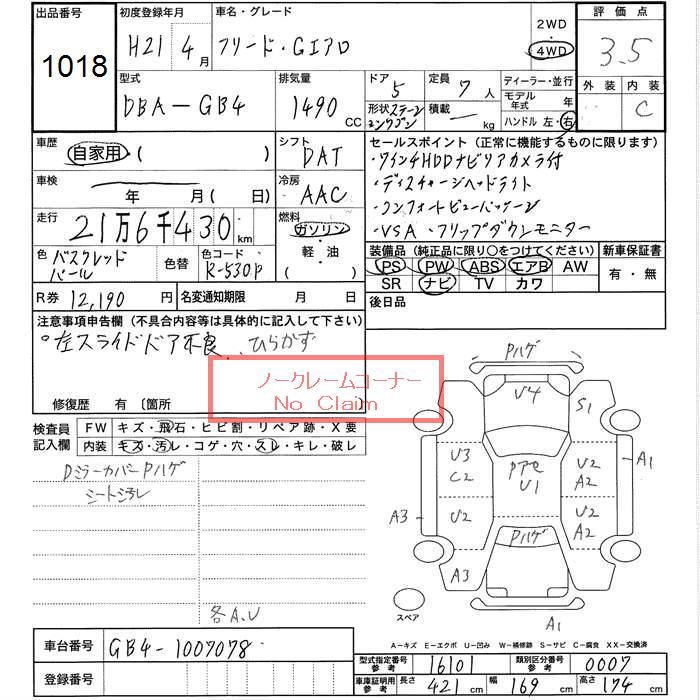 出品番号
1018
初度登録年月
H21 4月
車名・グレード
フリード・Gエアロ
2WD
4WD
評価点
3.5
外装 内装
C
型式
DBA-GB4
排気量
1490 CC
ドア
5
定員
7人
形状 ステーションワゴン
積載
— kg
ディーラー・並行
モデル年式 年
ハンドル 左・右
車歴
自家用 ( )
シフト
DAT
車検
年 月 ( 日)
冷房
AAC
走行
21万6千430 km
燃料
ガソリン
軽・油
( )
色
バスクレッドパール
色替
色コード
R-530P
R券 12,190 円
名変通知期限 月 日
セールスポイント (正常に機能するものに限ります)
・ワインチHDDナビリアカメラ付
・ディスチャージヘッドライト
・コンフォートビューパッケージ
・VSA ・フリップダウンモニター
装備品 (純正品に限り○をつけてください)
PS PW ABS エアB AW
SR ナビ TV カワ
新車保証書
有・無
後日品
注意事項申告欄 (不具合内容等は具体的に記入して下さい)
°左スライドドア不良、ひらかず
修復歴 有 〔箇所
ノークレームコーナー
No Claim
検査員記入欄
FW キズ・飛石・ヒビ割・リペア跡・X要
内装 キズ・汚レ・コゲ・穴・スレ・キレ・破レ
Dミラーカバー Pハゲ
シート汚レ
各A.U
Pハゲ
U4
S1
U3
C2
Pアセ
U1
U2
A2
A1
A3
U2
U2
A2
Pハゲ
A3
A1
スペア
A-キズ E-エクボ U-凹み W-補修跡 S-サビ C-腐食 XX-交換済
車台番号 GB4-1007078
登録番号
型式指定番号参考 16101
類別区分番号参考 0007
車庫証明用参考 長さ 421 cm 幅 169 cm 高さ 174 cm